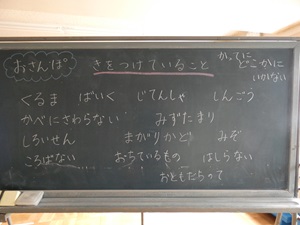 おさんぽ
きをつけていること
かってに
どこかに
いかない
くるま ばいく じてんしゃ しんごう
かべにさわらない みずたまり
しろいせん まがりかど みぞ
ころばない おちているもの はしらない
おともだちって